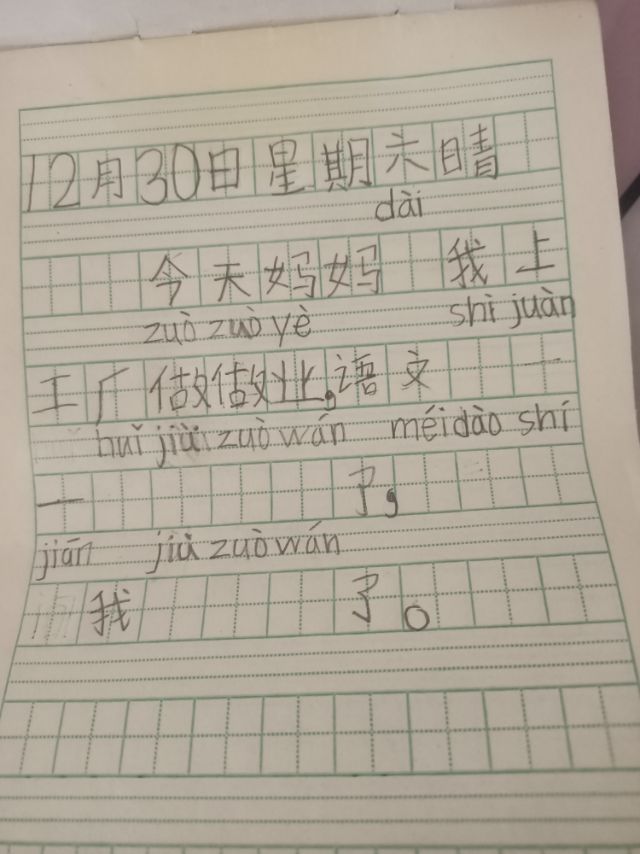 12月30日星期六晴
dài
今天妈妈 我上
zuò zuò yè shì juàn
工厂做做业,语文 一
huǐ jiù zuò wán méi dào shí
一 了,
jiān jiù zuò wán
我 了。